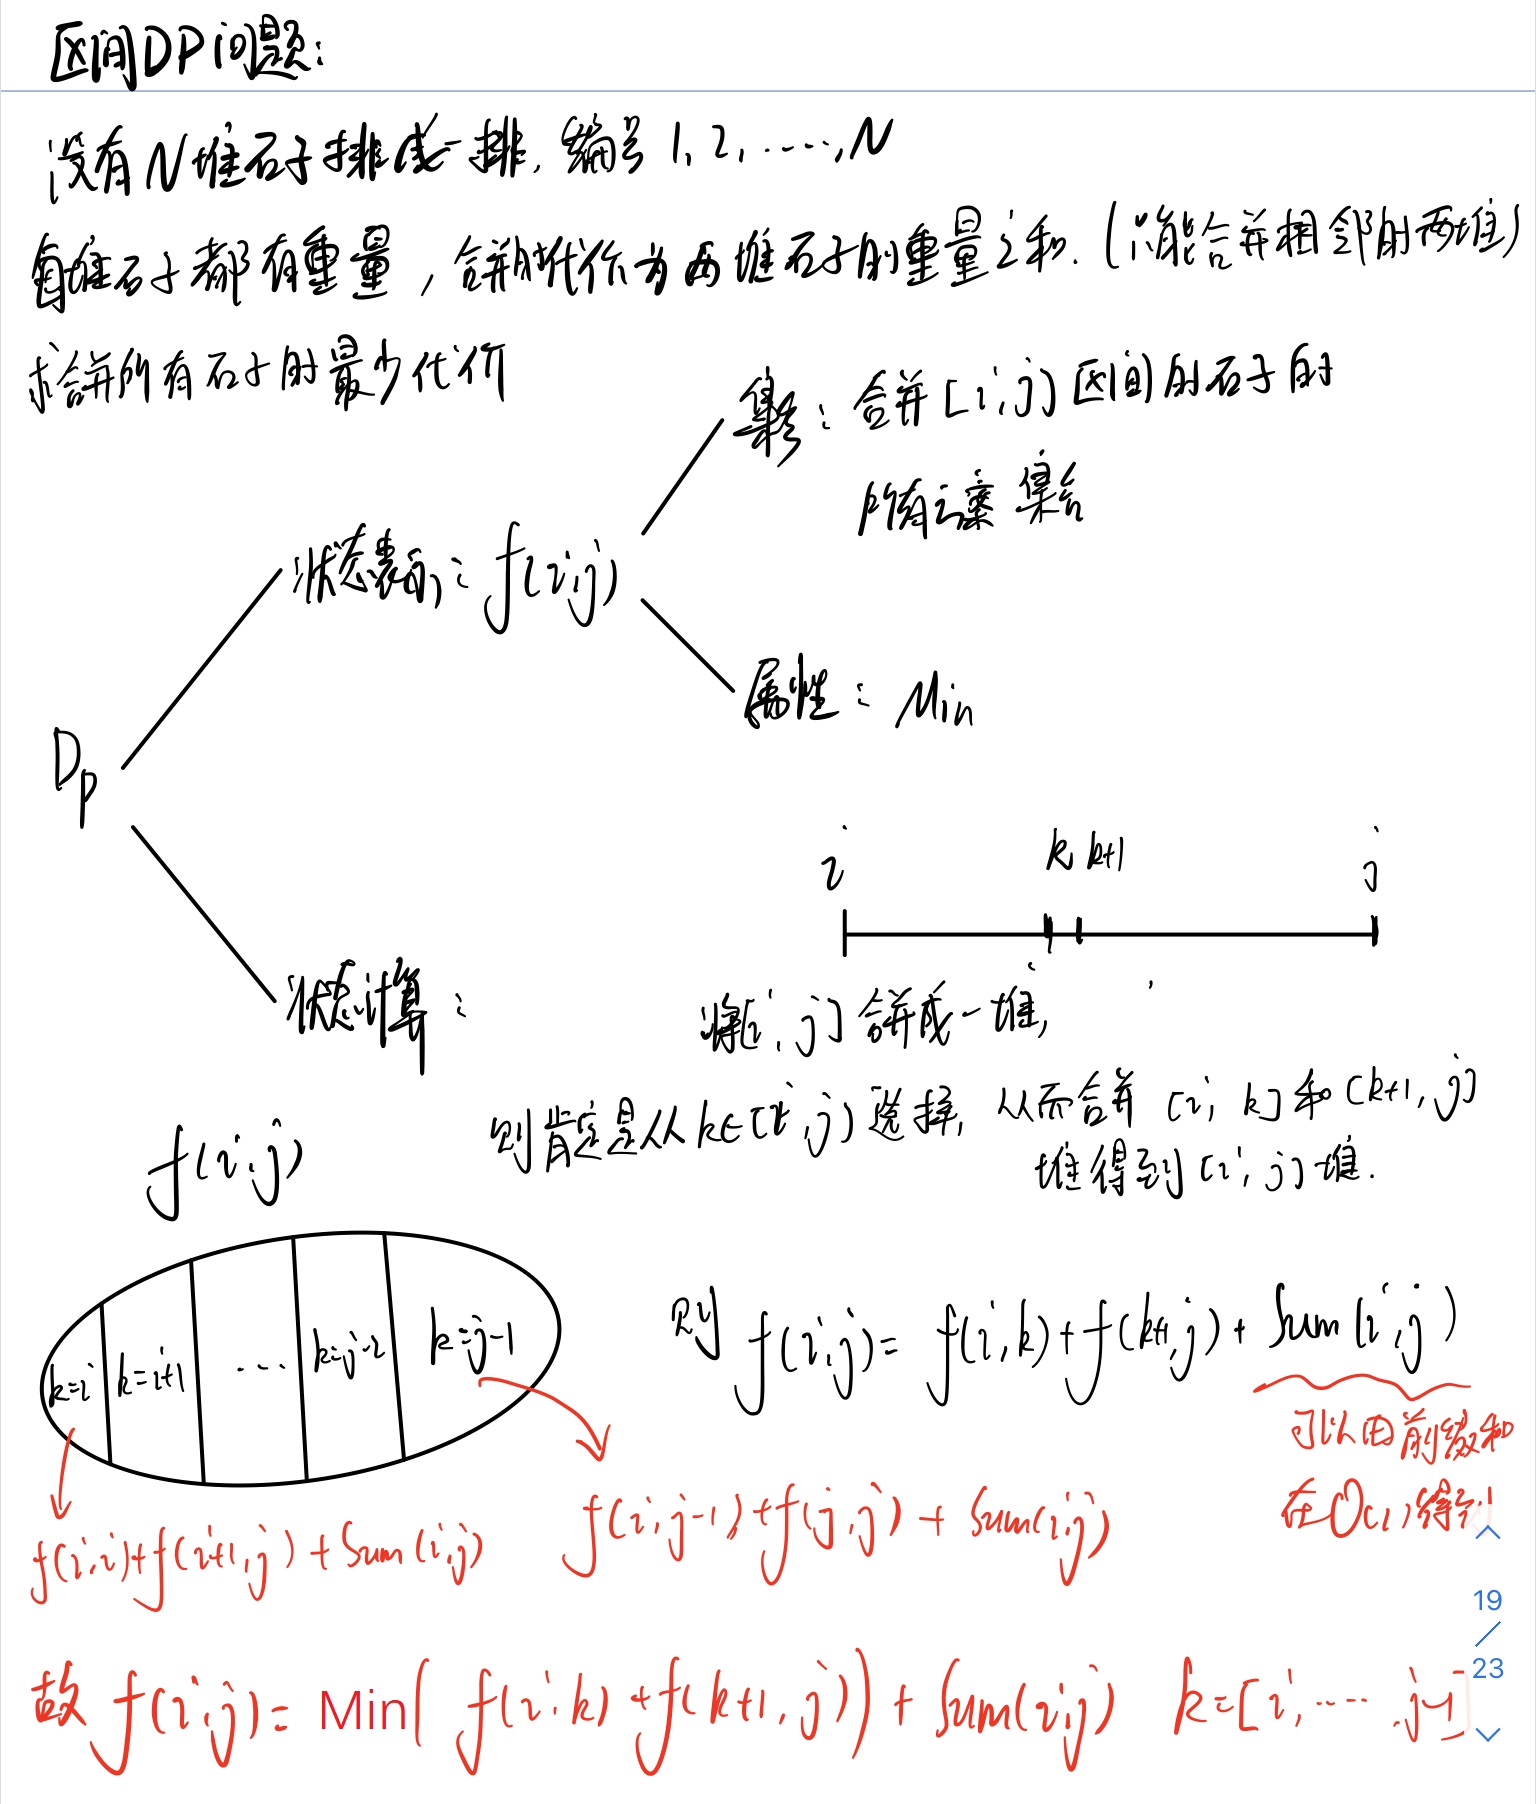 区间DP问题:
设有N堆石子排成一排,编号1,2,....,N
每堆石子都有重量,合并时代价为两堆石子的重量之和.(只能合并相邻的两堆)
求合并所有石子的最少代价
集合:合并[i,j]区间的石子的
所有方案集合
状态表示:f(i,j)
属性:Min
Dp
i k k+1 j
状态计算:
将[i,j]合并成一堆,
则肯定是从k∈[i,j)选择,从而合并[i,k]和[k+1,j]
堆得到[i,j]堆.
f(i,j)
k=i k=i+1 ... k=j-2 k=j-1
则 f(i,j)= f(i,k)+f(k+1,j)+Sum(i,j)
可以用前缀和
在O(1)得到
f(i,i)+f(i+1,j)+Sum(i,j)
f(i,j-1)+f(j,j)+Sum(i,j)
故 f(i,j)= Min( f(i,k)+f(k+1,j))+Sum(i,j) k=[i,.....j-1]
19
/
23